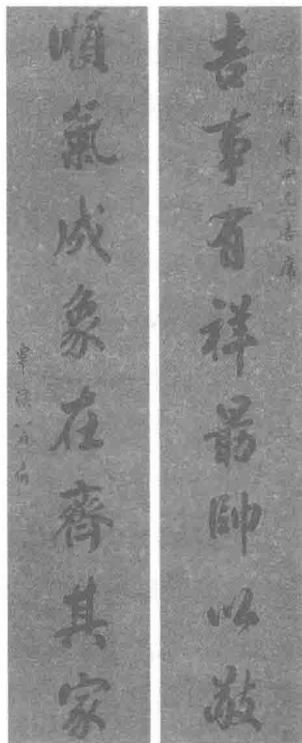 吉事有祥勗帥以敬
順氣成象在齊其家